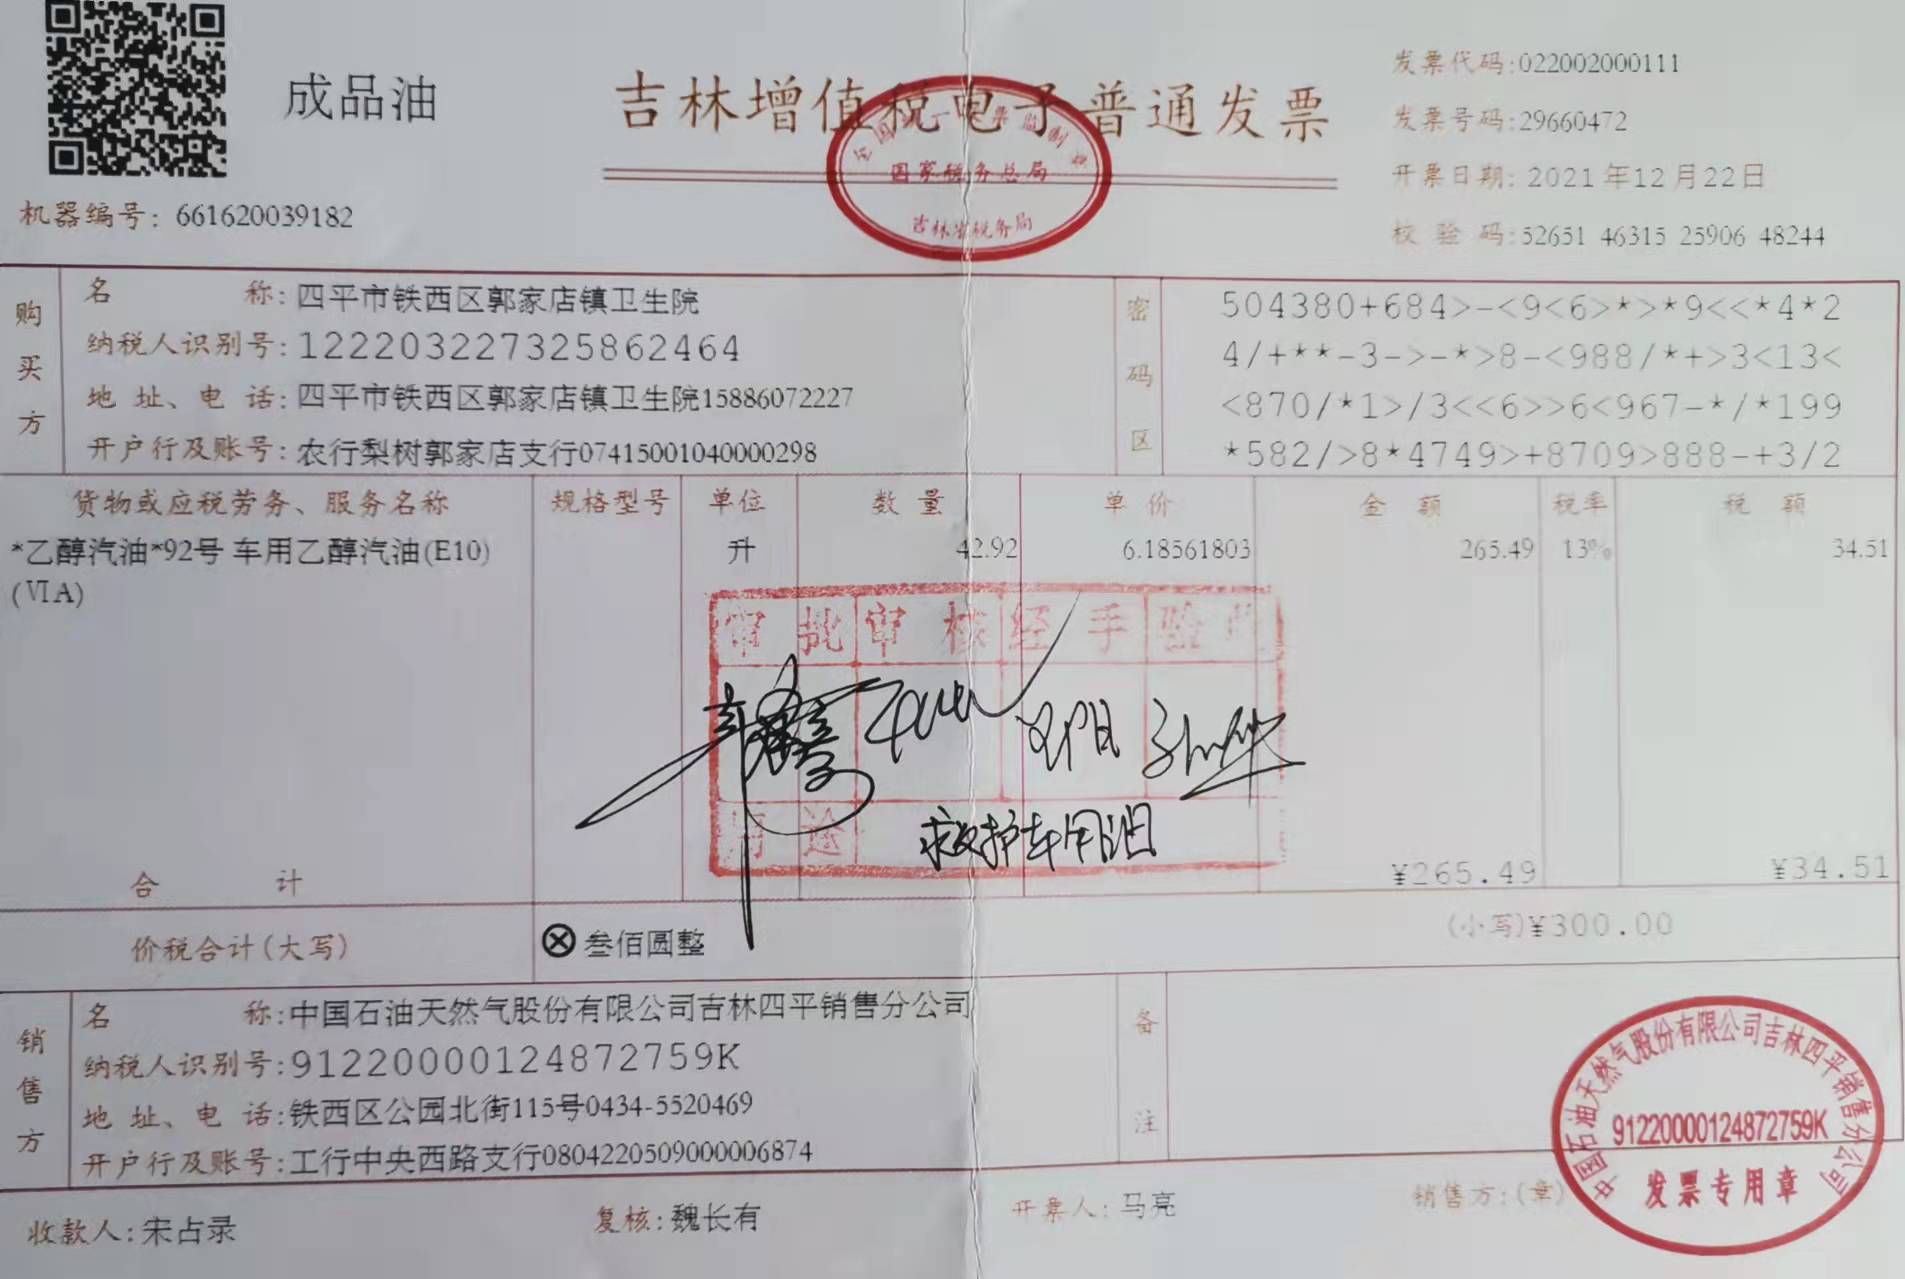 成品油
吉林增值税电子普通发票
发票代码:022002000111
发票号码:29660472
开票日期: 2021年12月22日
校 验 码:52651 46315 25906 48244
国家税务总局
吉林省税务局
机器编号: 661620039182
购买方
名 称: 四平市铁西区郭家店镇卫生院
纳税人识别号: 122203227325862464
地 址、电 话: 四平市铁西区郭家店镇卫生院15886072227
开户行及账号: 农行梨树郭家店支行07415001040000298
密码区
504380+684>-<9<6>*>*9<<*4*2
4/+**-3->-*>8-<988/*+>3<13<
<870/*1>/3<<6>>6<967-*/*199
*582/>8*4749>+8709>888-+3/2
货物或应税劳务、服务名称 规格型号 单位 数 量 单 价 金 额 税率 税 额
*乙醇汽油*92号 车用乙醇汽油(E10) 升 42.92 6.18561803 265.49 13% 34.51
(ⅥA)
审 批 审 核 经 手 验
用 途 救护车用油
合 计 ¥265.49 ¥34.51
价税合计(大写) ⊗叁佰圆整 (小写)¥300.00
销售方
名 称:中国石油天然气股份有限公司吉林四平销售分公司
纳税人识别号:91220000124872759K
地 址、电 话:铁西区公园北街115号0434-5520469
开户行及账号:工行中央西路支行0804220509000006874
备注
中国石油天然气股份有限公司吉林四平销售分公司
91220000124872759K
发票专用章
收款人:宋占录 复核:魏长有 开票人:马亮 销售方:(章)